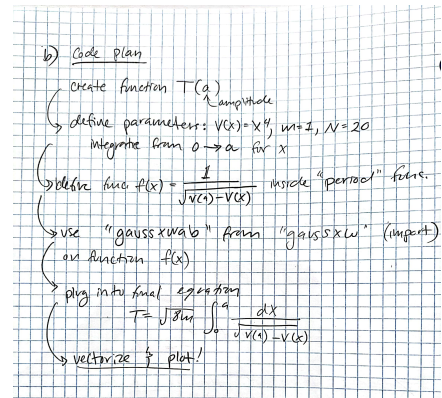 b) Code plan
create function T(a)
↑ amplitude
define parameters: V(x) = x⁴, m=1, N=20
integrate from 0 → a for x
define func f(x) = 1/√(V(a)-V(x)) inside "period" func.
use "gaussxwab" from "gaussxw" (import)
on function f(x)
plug into final equation
T = √8m ∫₀ᵃ dx/√(V(a)-V(x))
vectorize & plot!